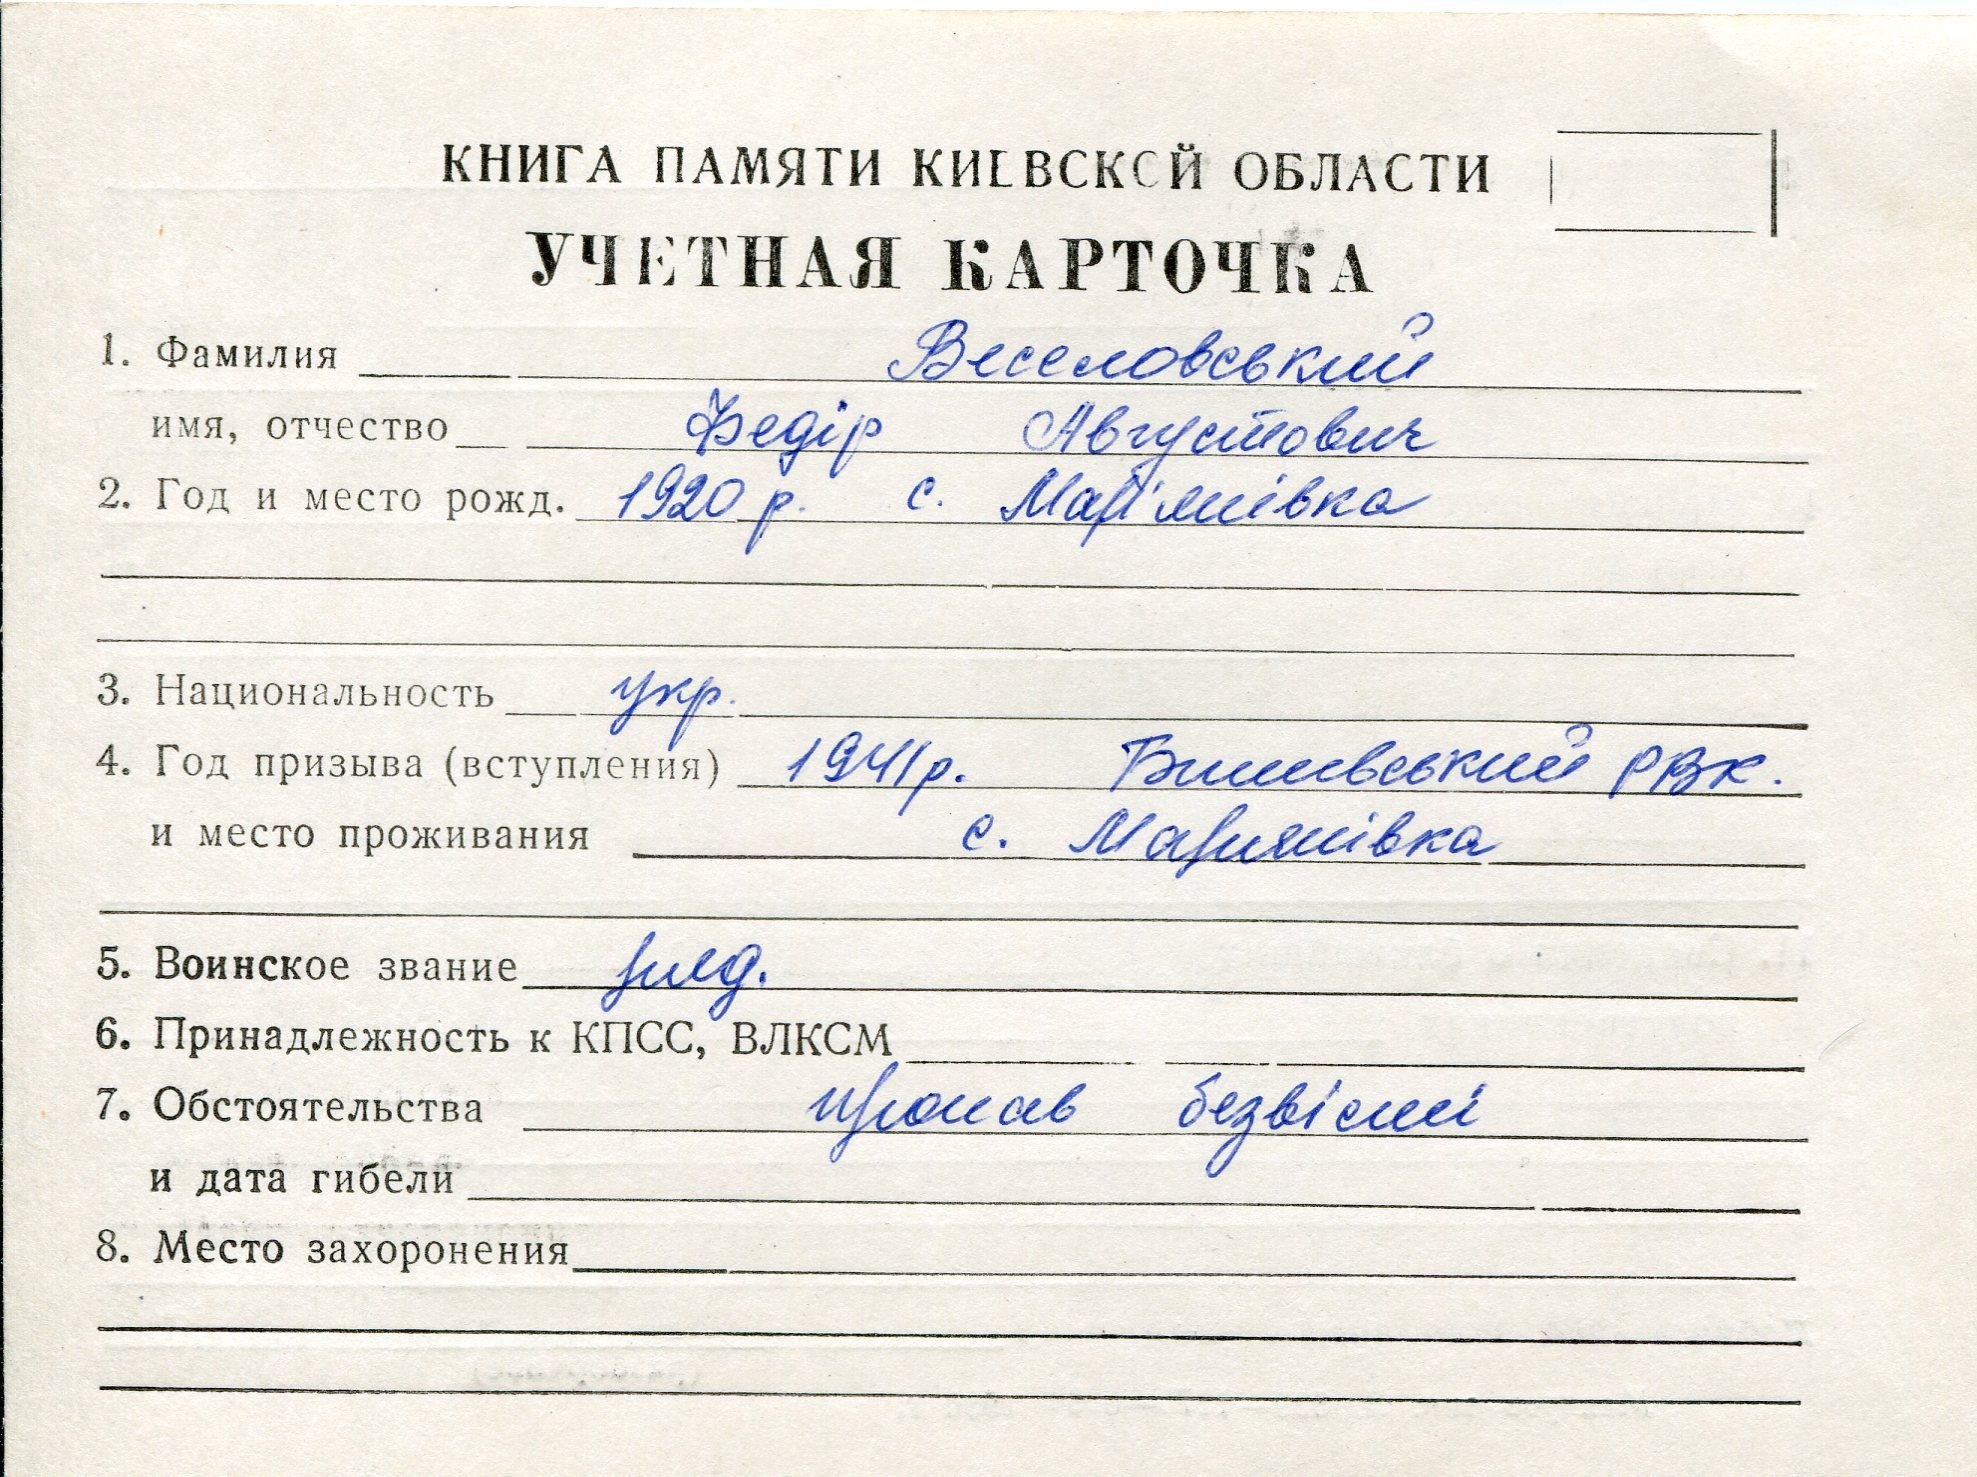 КНИГА ПАМЯТИ КИЕВСКОЙ ОБЛАСТИ
УЧЕТНАЯ КАРТОЧКА
1. Фамилия Веселовський
имя, отчество Федір Августович
2. Год и место рожд. 1920 р. с. Мар'янівка
3. Национальность укр.
4. Год призыва (вступления) 1941 р. Бишівський РВК.
и место проживания с. Мар'янівка
5. Воинское звание ряд.
6. Принадлежность к КПСС, ВЛКСМ
7. Обстоятельства пропав безвісті
и дата гибели
8. Место захоронения